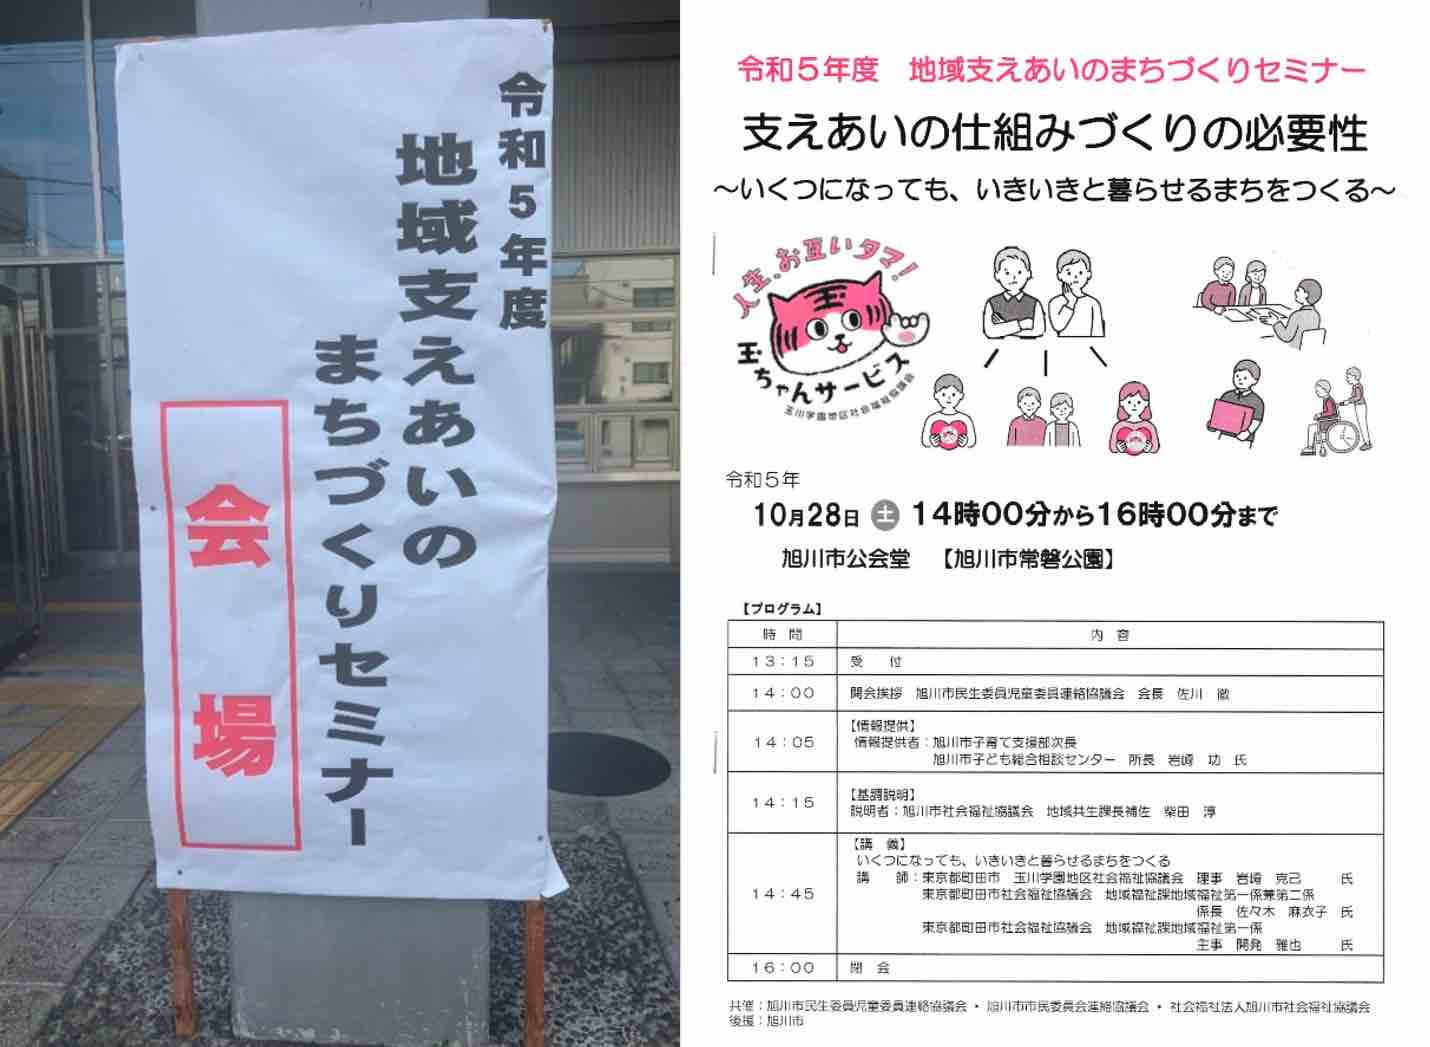 令和5年度
地域支えあいの
まちづくりセミナー
会場
令和5年度　地域支えあいのまちづくりセミナー
支えあいの仕組みづくりの必要性
～いくつになっても、いきいきと暮らせるまちをつくる～
人生、お互いタマ！
玉
玉ちゃんサービス
玉川学園地区社会福祉協議会
令和5年
10月28日 土 14時00分から16時00分まで
旭川市公会堂　【旭川市常磐公園】
【プログラム】
時　間　内　容
13：15　受　付
14：00　開会挨拶　旭川市民生委員児童委員連絡協議会　会長　佐川　徹
【情報提供】
14：05　情報提供者：旭川市子育て支援部次長
旭川市子ども総合相談センター　所長　岩崎　功　氏
【基調説明】
14：15　説明者：旭川市社会福祉協議会　地域共生課長補佐　柴田　淳
【講　義】
いくつになっても、いきいきと暮らせるまちをつくる
講　師：東京都町田市　玉川学園地区社会福祉協議会　理事　岩崎　克己　氏
14：45　東京都町田市社会福祉協議会　地域福祉課地域福祉第一係兼第二係
係長　佐々木　麻衣子　氏
東京都町田市社会福祉協議会　地域福祉課地域福祉第一係
主事　開発　雅也　氏
16：00　閉　会
共催：旭川市民生委員児童委員連絡協議会・旭川市市民委員会連絡協議会・社会福祉法人旭川市社会福祉協議会
後援：旭川市